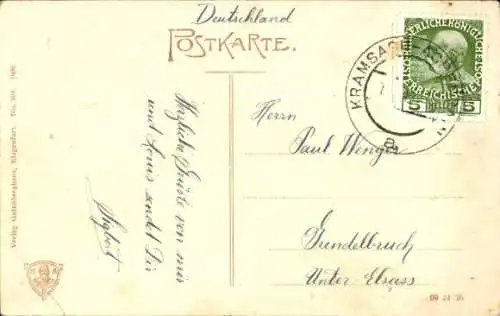 Deutschland
POSTKARTE.
KAISERLICHE KÖNIGLICHE
ÖSTERREICHISCHE POST
5 HELLER 5
KRAMSACH
Herrn
Paul Wenger
Gundelbruch
Unter Elsass
Herzliche Grüße von mir
und Louis sendet Dir
Verlag Gutenberghaus, Klagenfurt.